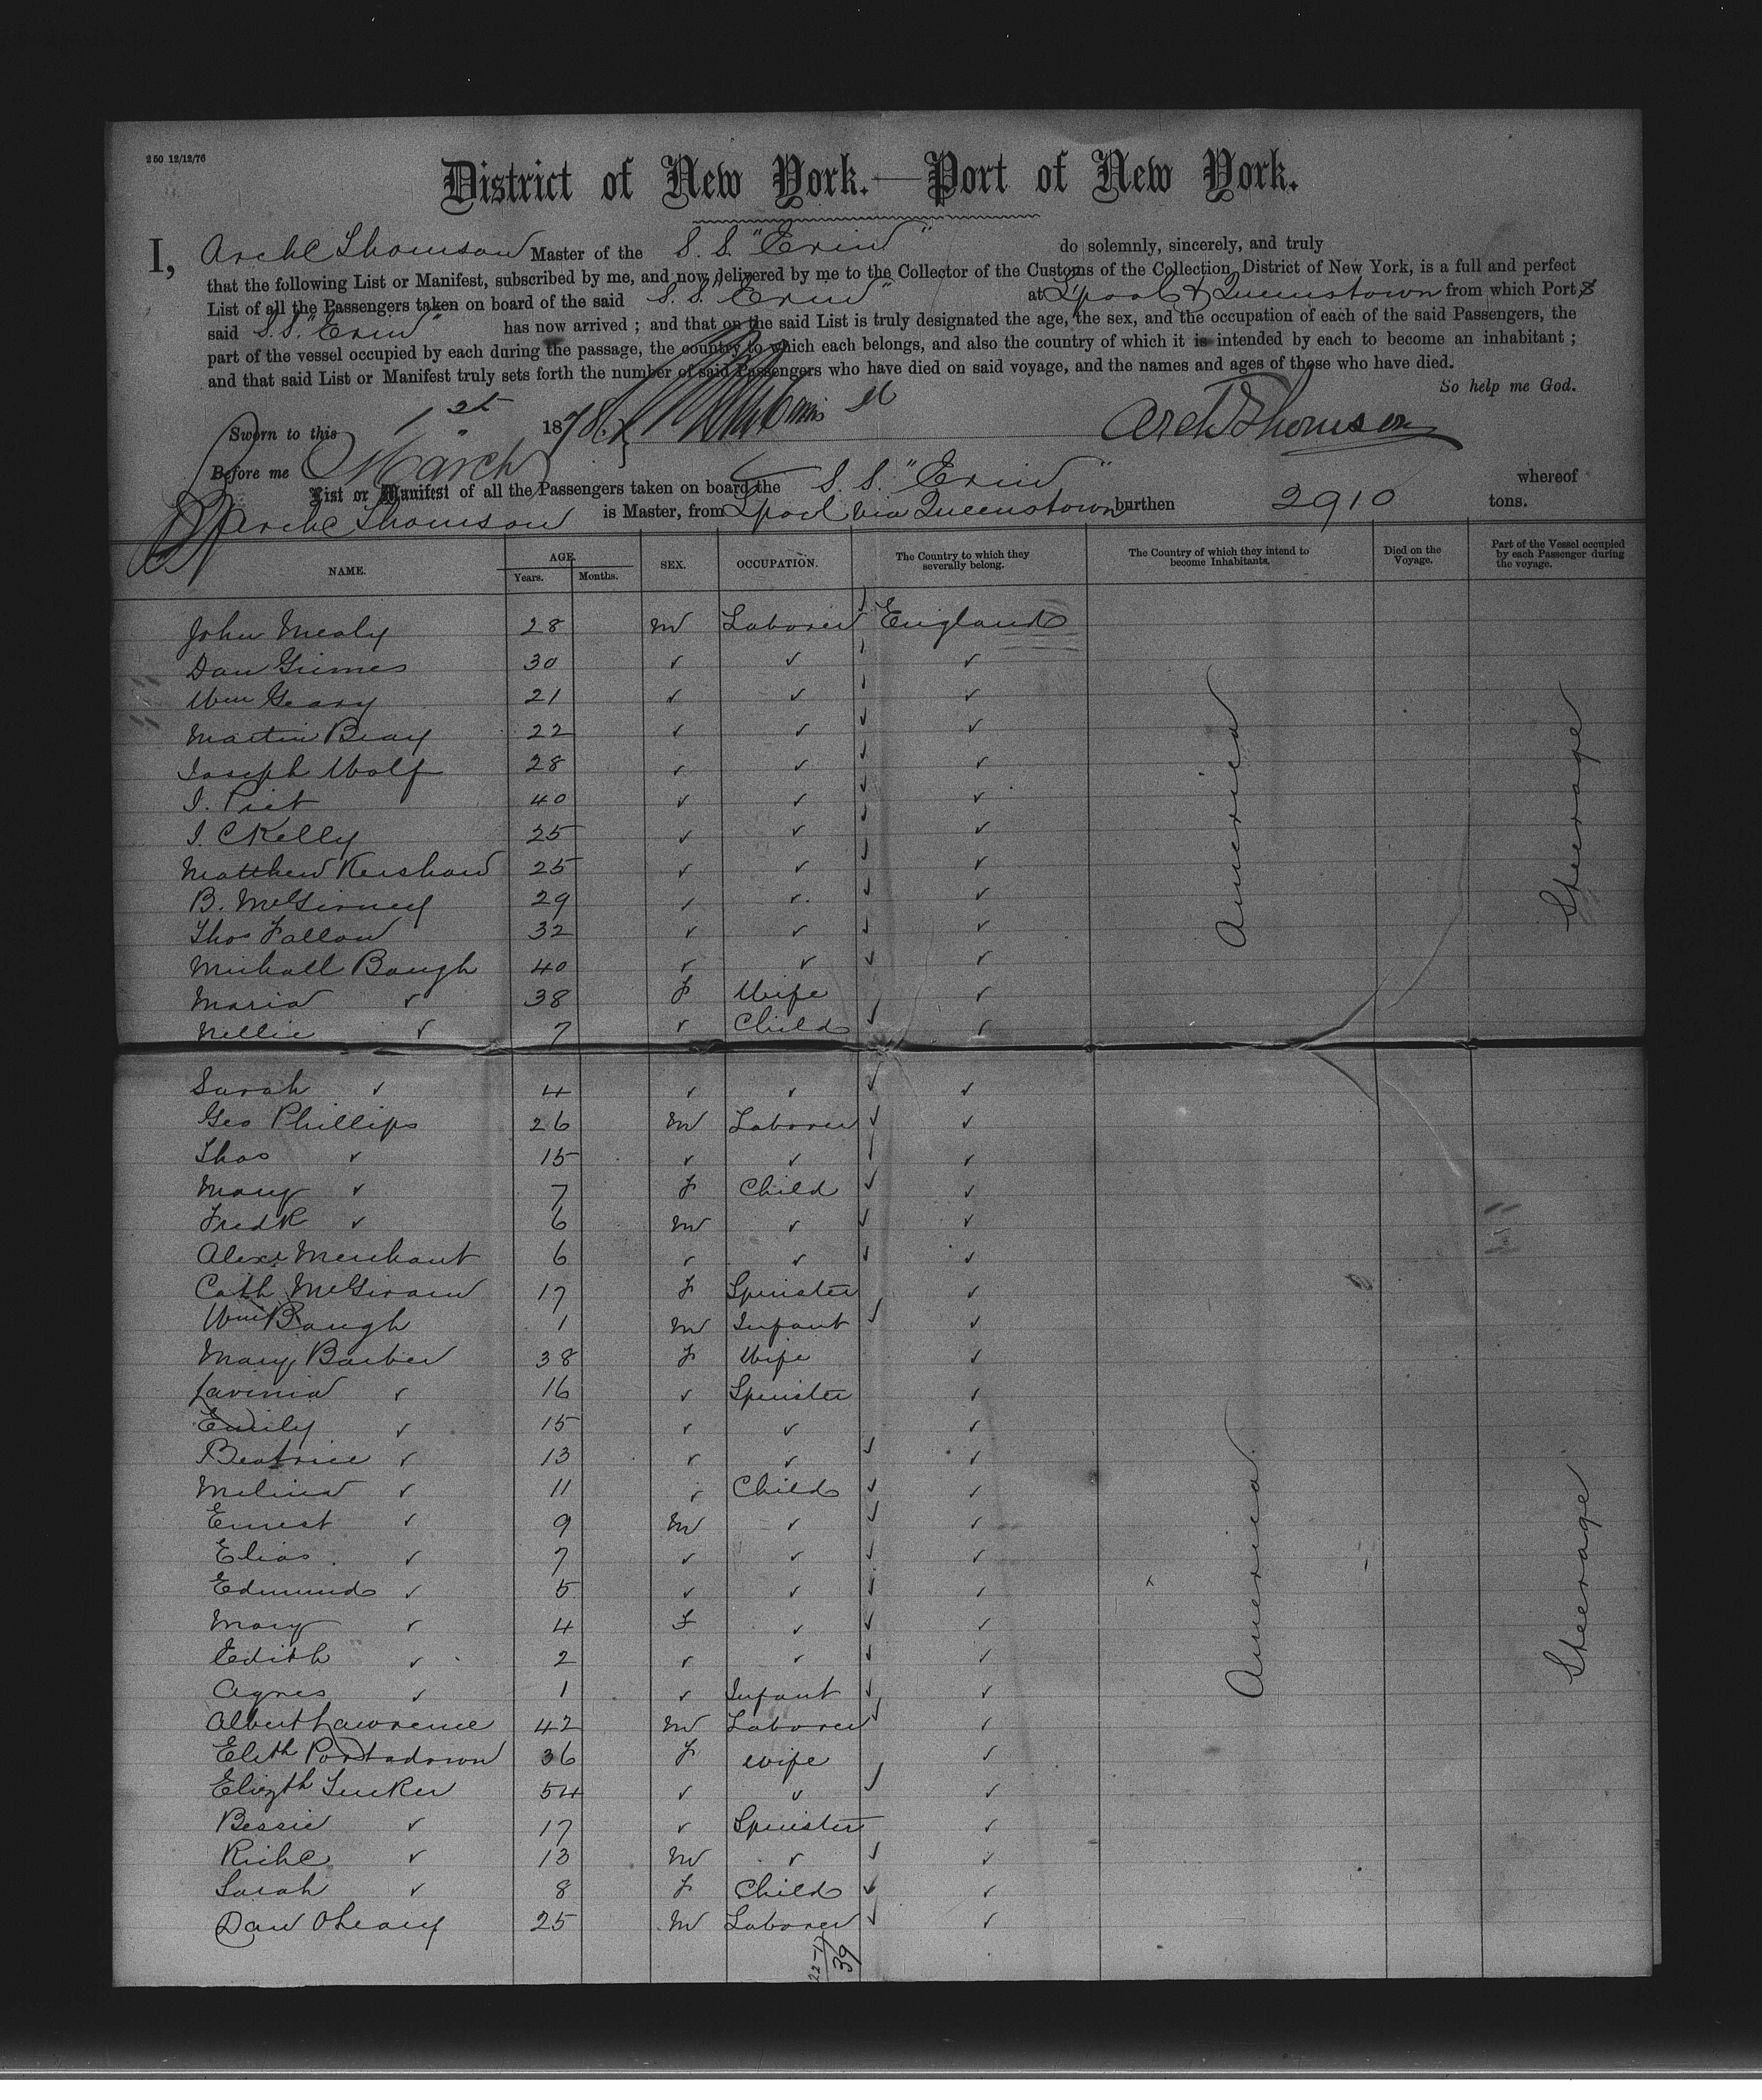 250 12/12/76
District of New York.—Port of New York.
I, Archd Thomson Master of the S. S. "Erin" do solemnly, sincerely, and truly
that the following List or Manifest, subscribed by me, and now delivered by me to the Collector of the Customs of the Collection District of New York, is a full and perfect
List of all the Passengers taken on board of the said S. S. "Erin" at L'pool & Queenstown from which Port
said S. S. "Erin" has now arrived ; and that on the said List is truly designated the age, the sex, and the occupation of each of the said Passengers, the
part of the vessel occupied by each during the passage, the country to which each belongs, and also the country of which it is intended by each to become an inhabitant ;
and that said List or Manifest truly sets forth the number of said Passengers who have died on said voyage, and the names and ages of those who have died.
So help me God.
Sworn to this 1st 1878 Arch Thomson
Before me March
List or Manifest of all the Passengers taken on board the S. S. "Erin" whereof
Archd Thomson is Master, from L'pool via Queenstown burthen 2910 tons.
NAME. AGE. Years. Months. SEX. OCCUPATION. The Country to which they severally belong. The Country of which they intend to become Inhabitants. Died on the Voyage. Part of the Vessel occupied by each Passenger during the voyage.
John Mealy 28 M Laborer England
Dan Grimes 30 ✓ ✓ ✓
Wm Geary 21 ✓ ✓ ✓
Martin Bray 22 ✓ ✓ ✓
Joseph Wolf 28 ✓ ✓ ✓
J. Piet 40 ✓ ✓ ✓
J. C Kelly 25 ✓ ✓ ✓
Matthew Kershaw 25 ✓ ✓ ✓
B. McGirney 29 ✓ ✓ ✓
Thos Fallow 32 ✓ ✓ ✓
Michall Baugh 40 ✓ ✓ ✓
Maria ✓ 38 F Wife ✓
Nellie ✓ 7 ✓ Child ✓
America
Steerage
Sarah ✓ 4 ✓ ✓ ✓
Geo Phillips 26 M Laborer ✓
Thos ✓ 15 ✓ ✓ ✓
Mary ✓ 7 F Child ✓
Fredk ✓ 6 M ✓ ✓
Alexr Merchant 6 ✓ ✓ ✓
Cath McGirarn 17 F Spinster ✓
Wm Baugh 1 M Infant ✓
Mary Barber 38 F Wife ✓
Lavinia ✓ 16 ✓ Spinster ✓
Emily ✓ 15 ✓ ✓ ✓
Beatrice ✓ 13 ✓ ✓ ✓
Melina ✓ 11 ✓ Child ✓
Ernest ✓ 9 M ✓ ✓
Elias ✓ 7 ✓ ✓ ✓
Edmund ✓ 5 ✓ ✓ ✓
Mary ✓ 4 F ✓ ✓
Edith ✓ 2 ✓ ✓ ✓
Agnes ✓ 1 ✓ Infant ✓
Albert Lawrence 42 M Laborer ✓
Elith Portadown 36 F Wife ✓
Elizth Tucker 54 ✓ ✓ ✓
Bessie ✓ 17 ✓ Spinster ✓
Richd ✓ 13 M ✓ ✓
Sarah ✓ 8 F Child ✓
Dan Oleary 25 M Laborer ✓
America
Steerage
22-17
39